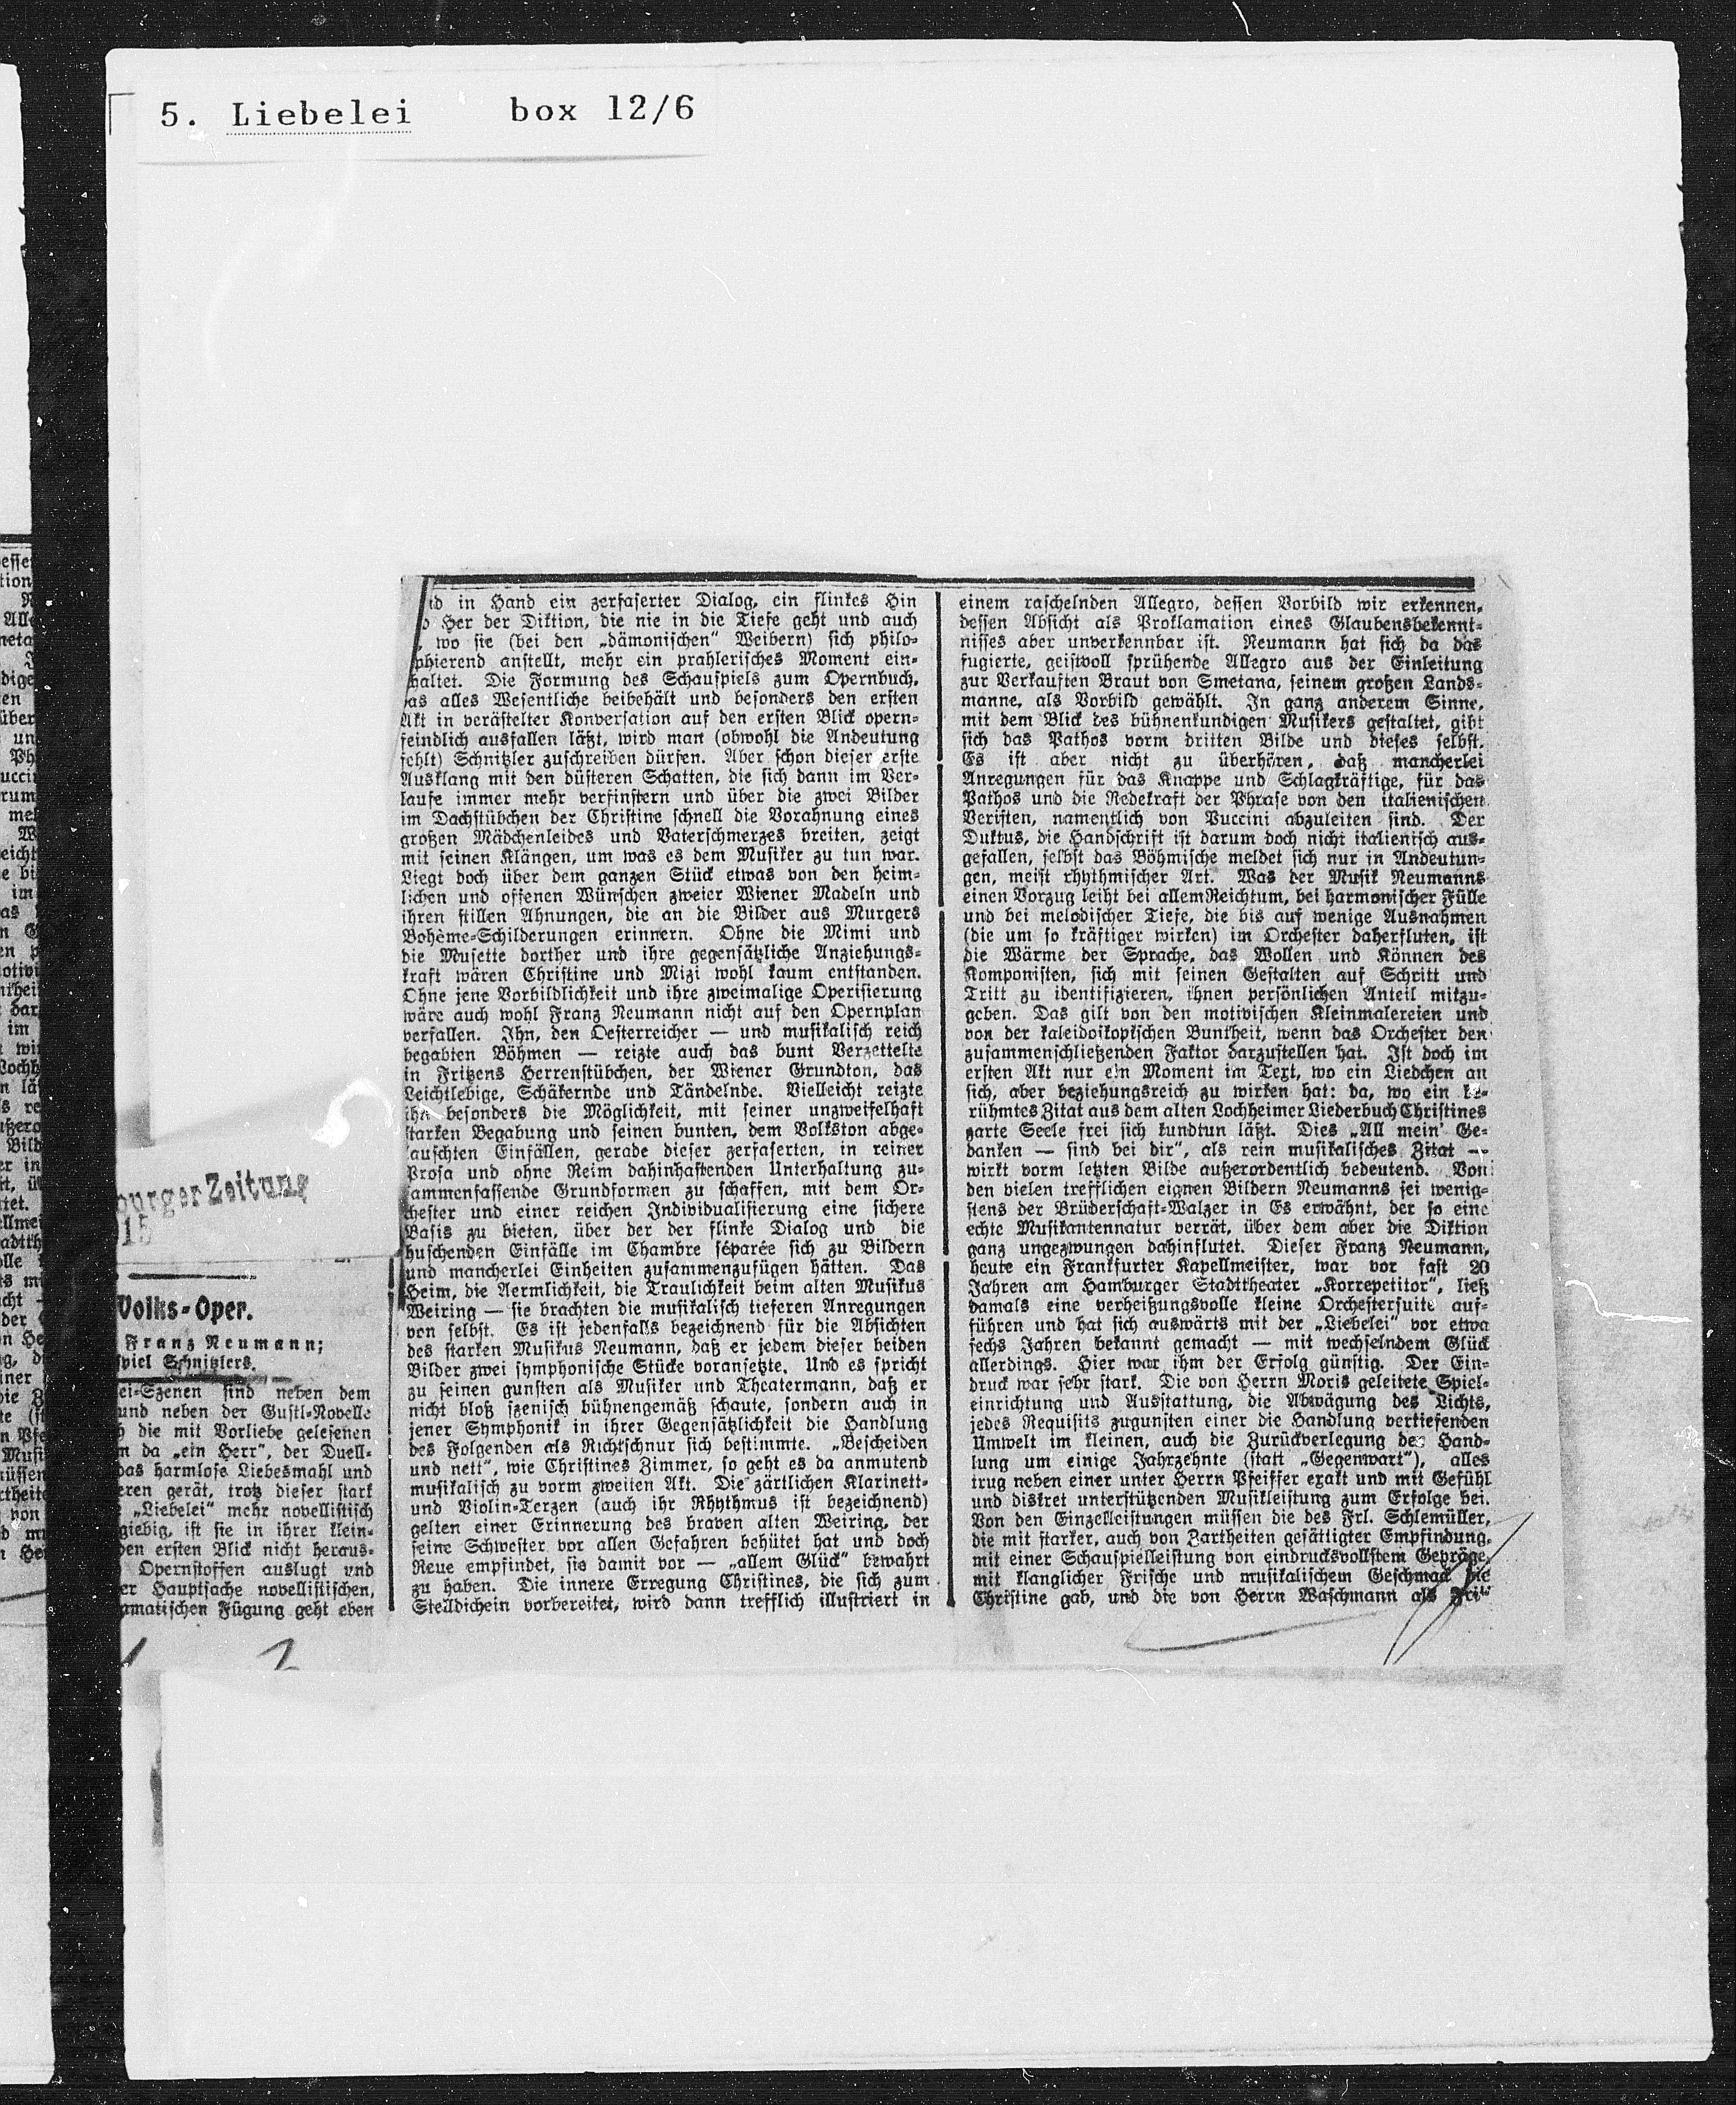 5. Liebelei box 12/6
burger Zeitung
15
Volks-Oper.
Franz Neumann;
spiel Schnitzlers.
ei-Szenen sind neben dem
und neben der Gustl-Novelle
die mit Vorliebe gelesenen
m da „ein Herr“, der Duell-
das harmlose Liebesmahl und
eren gerät, trotz dieser stark
„Liebelei“ mehr novellistisch
giebig, ist sie in ihrer klein-
den ersten Blick nicht heraus-
Opernstoffen auslugt und
er Hauptsache novellistischen,
amatischen Fügung geht eben
id in Hand ein zerfaserter Dialog, ein flinkes Hin
Her der Diktion, die nie in die Tiefe geht und auch
, wo sie (bei den „dämonischen“ Weibern) sich philo-
phierend anstellt, mehr ein prahlerisches Moment ein-
haltet. Die Formung des Schauspiels zum Opernbuch,
das alles Wesentliche beibehält und besonders den ersten
Akt in verästelter Konversation auf den ersten Blick opern-
feindlich ausfallen läßt, wird man (obwohl die Andeutung
fehlt) Schnitzler zuschreiben dürfen. Aber schon dieser erste
Ausklang mit den düsteren Schatten, die sich dann im Ver-
laufe immer mehr verfinstern und über die zwei Bilder
im Dachstübchen der Christine schnell die Vorahnung eines
großen Mädchenleides und Vaterschmerzes breiten, zeigt
mit seinen Klängen, um was es dem Musiker zu tun war.
Liegt doch über dem ganzen Stück etwas von den heim-
lichen und offenen Wünschen zweier Wiener Madeln und
ihren stillen Ahnungen, die an die Bilder aus Murgers
Bohème-Schilderungen erinnern. Ohne die Mimi und
die Musette dorther und ihre gegensätzliche Anziehungs-
kraft wären Christine und Mizi wohl kaum entstanden.
Ohne jene Vorbildlichkeit und ihre zweimalige Operisierung
wäre auch wohl Franz Neumann nicht auf den Opernplan
verfallen. Ihn, den Oesterreicher — und musikalisch reich
begabten Böhmen — reizte auch das bunt Verzettelte
in Fritzens Herrenstübchen, der Wiener Grundton, das
Leichtlebige, Schäkernde und Tändelnde. Vielleicht reizte
ihn besonders die Möglichkeit, mit seiner unzweifelhaft
starken Begabung und seinen bunten, dem Volkston abge-
lauschten Einfällen, gerade dieser zerfaserten, in reiner
Prosa und ohne Reim dahinhastenden Unterhaltung zu-
sammenfassende Grundformen zu schaffen, mit dem Or-
chester und einer reichen Individualisierung eine sichere
Basis zu bieten, über der der flinke Dialog und die
huschenden Einfälle im Chambre séparée sich zu Bildern
und mancherlei Einheiten zusammenzufügen hätten. Das
Heim, die Aermlichkeit, die Traulichkeit beim alten Musikus
Weiring — sie brachten die musikalisch tieferen Anregungen
von selbst. Es ist jedenfalls bezeichnend für die Absichten
des starken Musikus Neumann, daß er jedem dieser beiden
Bilder zwei symphonische Stücke voransetzte. Und es spricht
zu seinen gunsten als Musiker und Theatermann, daß er
nicht bloß szenisch bühnengemäß schaute, sondern auch in
jener Symphonik in ihrer Gegensätzlichkeit die Handlung
des Folgenden als Richtschnur sich bestimmte. „Bescheiden
und nett“, wie Christines Zimmer, so geht es da anmutend
musikalisch zu vorm zweiten Akt. Die zärtlichen Klarinett-
und Violin-Terzen (auch ihr Rhythmus ist bezeichnend)
gelten einer Erinnerung des braven alten Weiring, der
seine Schwester vor allen Gefahren behütet hat und doch
Reue empfindet, sie damit vor — „allem Glück“ bewahrt
zu haben. Die innere Erregung Christines, die sich zum
Stelldichein vorbereitet, wird dann trefflich illustriert in
einem raschelnden Allegro, dessen Vorbild wir erkennen,
dessen Absicht als Proklamation eines Glaubensbekennt-
nisses aber unverkennbar ist. Neumann hat sich da das
fugierte, geistvoll sprühende Allegro aus der Einleitung
zur Verkauften Braut von Smetana, seinem großen Lands-
manne, als Vorbild gewählt. In ganz anderem Sinne,
mit dem Blick des bühnenkundigen Musikers gestaltet, gibt
sich das Pathos vorm dritten Bilde und dieses selbst.
Es ist aber nicht zu überhören, daß mancherlei
Anregungen für das Knappe und Schlagkräftige, für das
Pathos und die Redekraft der Phrase von den italienischen
Veristen, namentlich von Puccini abzuleiten sind. Der
Duktus, die Handschrift ist darum doch nicht italienisch aus-
gefallen, selbst das Böhmische meldet sich nur in Andeutun-
gen, meist rhythmischer Art. Was der Musik Neumanns
einen Vorzug leiht bei allem Reichtum, bei harmonischer Fülle
und bei melodischer Tiefe, die bis auf wenige Ausnahmen
(die um so kräftiger wirken) im Orchester daherfluten, ist
die Wärme der Sprache, das Wollen und Können des
Komponisten, sich mit seinen Gestalten auf Schritt und
Tritt zu identifizieren, ihnen persönlichen Anteil mitzu-
geben. Das gilt von den motivischen Kleinmalereien und
von der kaleidoskopischen Buntheit, wenn das Orchester den
zusammenschließenden Faktor darzustellen hat. Ist doch im
ersten Akt nur ein Moment im Text, wo ein Liedchen an
sich, aber beziehungsreich zu wirken hat: da, wo ein be-
rühmtes Zitat aus dem alten Lochheimer Liederbuch Christines
zarte Seele frei sich kundtun läßt. Dies „All mein' Ge-
danken — sind bei dir“, als rein musikalisches Zitat —
wirkt vorm letzten Bilde außerordentlich bedeutend. Von
den vielen trefflichen eignen Bildern Neumanns sei wenig-
stens der Brüderschaft-Walzer in Es erwähnt, der so eine
echte Musikantennatur verrät, über dem aber die Diktion
ganz ungezwungen dahinflutet. Dieser Franz Neumann,
heute ein Frankfurter Kapellmeister, war vor fast 20
Jahren am Hamburger Stadttheater „Korrepetitor“, ließ
damals eine verheißungsvolle kleine Orchestersuite auf-
führen und hat sich auswärts mit der „Liebelei“ vor etwa
sechs Jahren bekannt gemacht — mit wechselndem Glück
allerdings. Hier war ihm der Erfolg günstig. Der Ein-
druck war sehr stark. Die von Herrn Moris geleitete Spiel-
einrichtung und Ausstattung, die Abwägung des Lichts,
jedes Requisits zugunsten einer die Handlung vertiefenden
Umwelt im kleinen, auch die Zurückverlegung der Hand-
lung um einige Jahrzehnte (statt „Gegenwart“), alles
trug neben einer unter Herrn Pfeiffer exakt und mit Gefühl
und diskret unterstützenden Musikleistung zum Erfolge bei.
Von den Einzelleistungen müssen die des Frl. Schlemüller,
die mit starker, auch von Zartheiten gesättigter Empfindung,
mit einer Schauspielleistung von eindrucksvollstem Gepräge,
mit klanglicher Frische und musikalischem Geschmack die
Christine gab, und die von Herrn Waschmann als